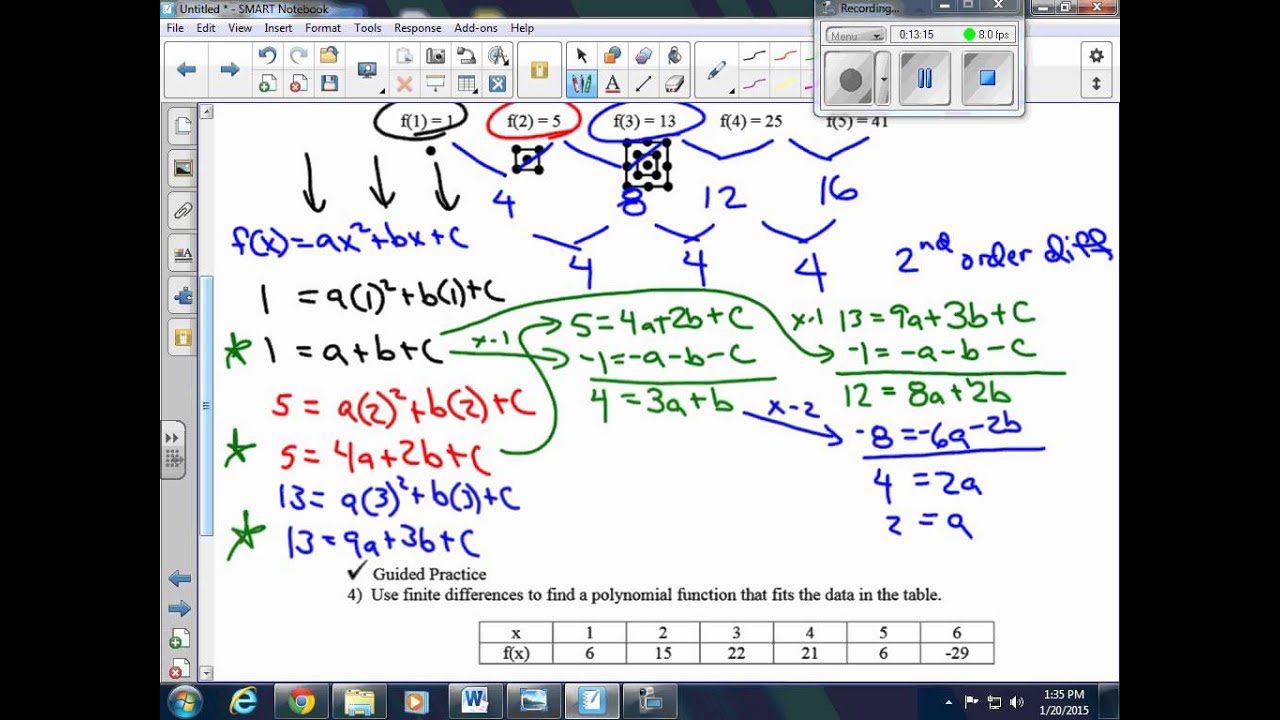 Untitled * - SMART Notebook
Recording...
File Edit View Insert Format Tools Response Add-ons Help
Menu 0:13:15 8.0 fps
f(1) = 1 f(2) = 5 f(3) = 13 f(4) = 25 f(5) = 41
4 8 12 16
f(x)=ax²+bx+c
4 4 4 2nd order diff
1 = a(1)²+b(1)+c
1 = a+b+c
5 = a(2)²+b(2)+c
5 = 4a+2b+c
13 = a(3)²+b(3)+c
13 = 9a+3b+c
x-1
5 = 4a+2b+c
-1 = -a-b-c
4 = 3a+b
x-2
x-1
13 = 9a+3b+c
-1 = -a-b-c
12 = 8a+2b
-8 = -6a-2b
4 = 2a
2 = a
✓ Guided Practice
4) Use finite differences to find a polynomial function that fits the data in the table.
x 1 2 3 4 5 6
f(x) 6 15 22 21 6 -29
1:35 PM
1/20/2015